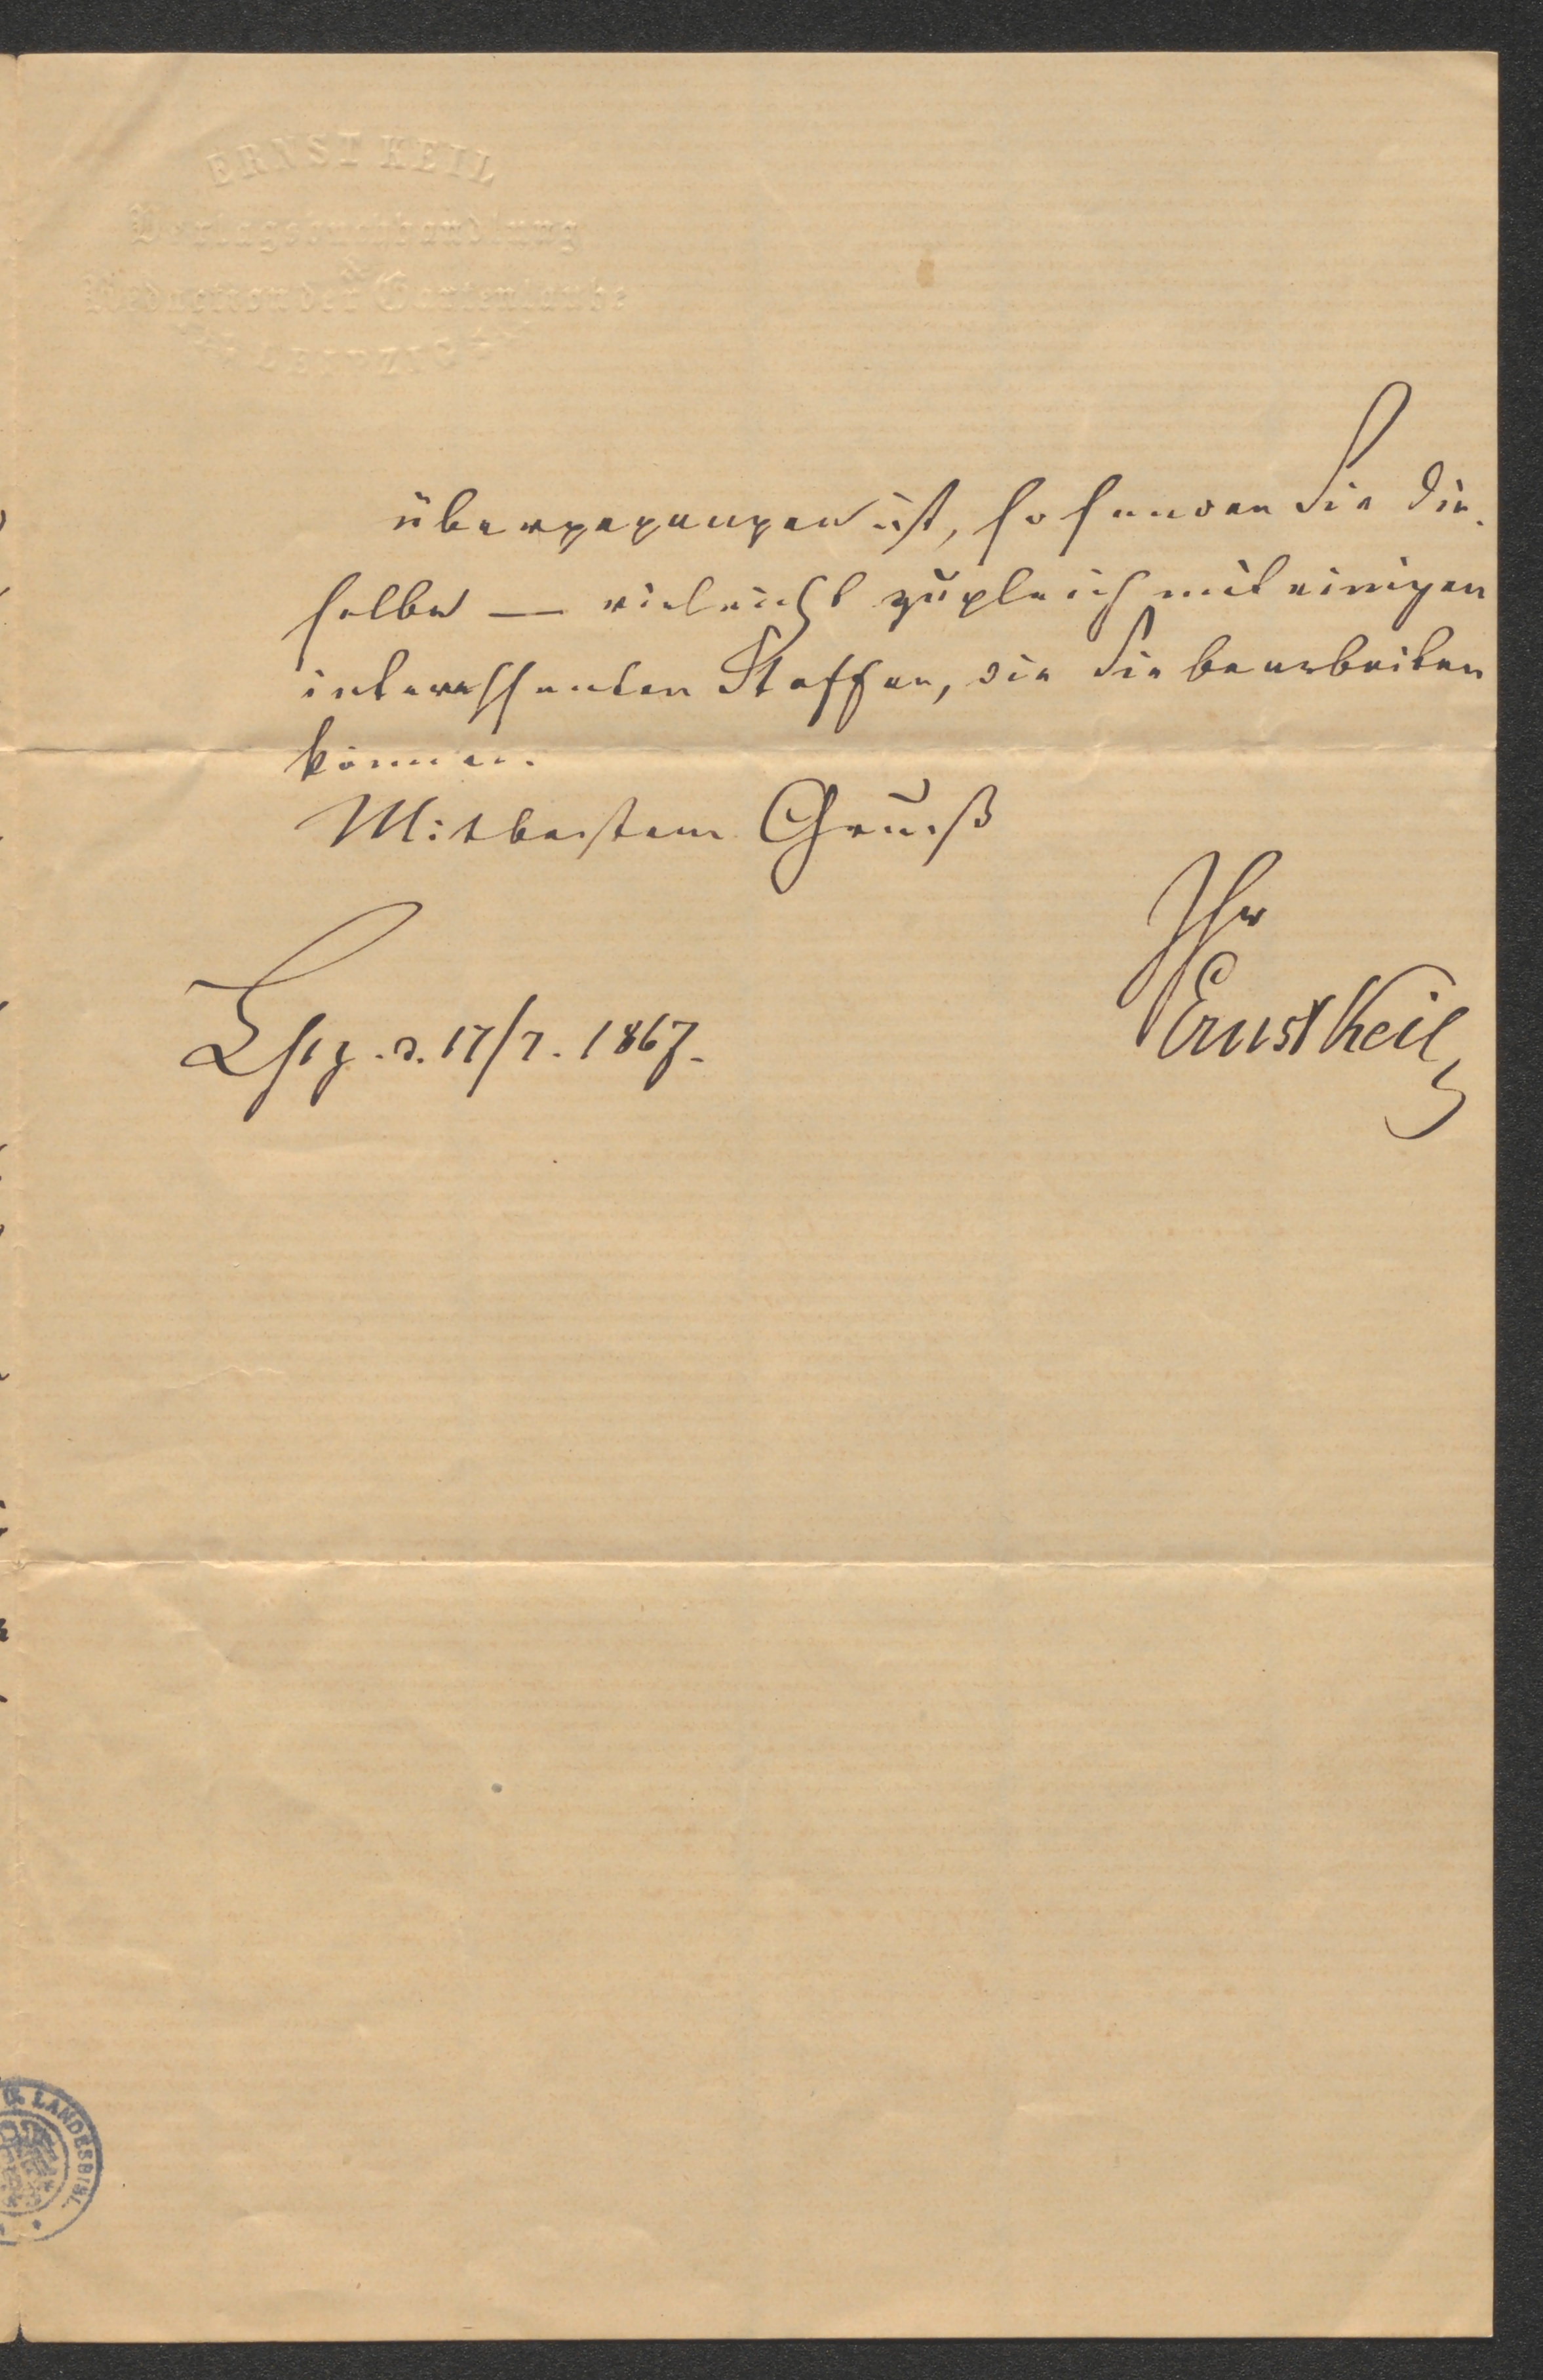 ERNST KEIL
Verlagsbuchhandlung
&
Redaction der Gartenlaube
LEIPZIG
übergegangen ist, so senden Sie die-
selbe — vieleicht zugleich mit einigen
interessanten Stoffen, die Sie bearbeiten
können.
Mit bestem Gruß
Ihr
Ernst Keil
Lpzg. d. 17/7. 1867.
LANDESBIBL.